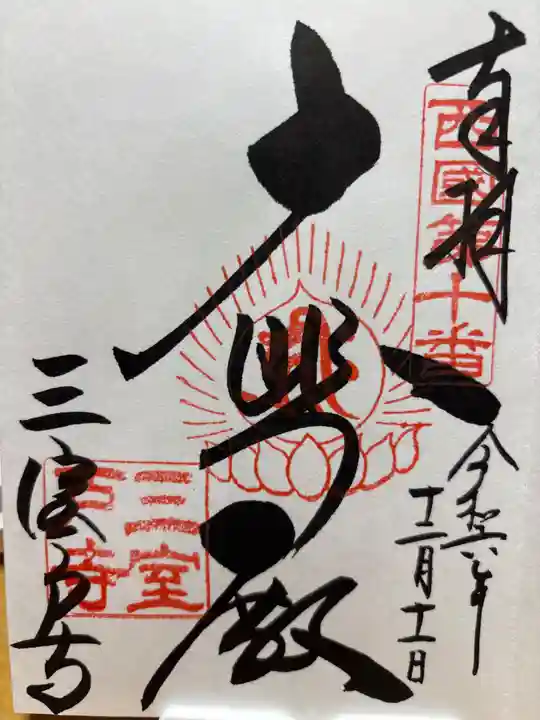 奉拝
西國第十番
令和六年
十二月十一日
大悲殿
三室戸寺
三室
戸寺